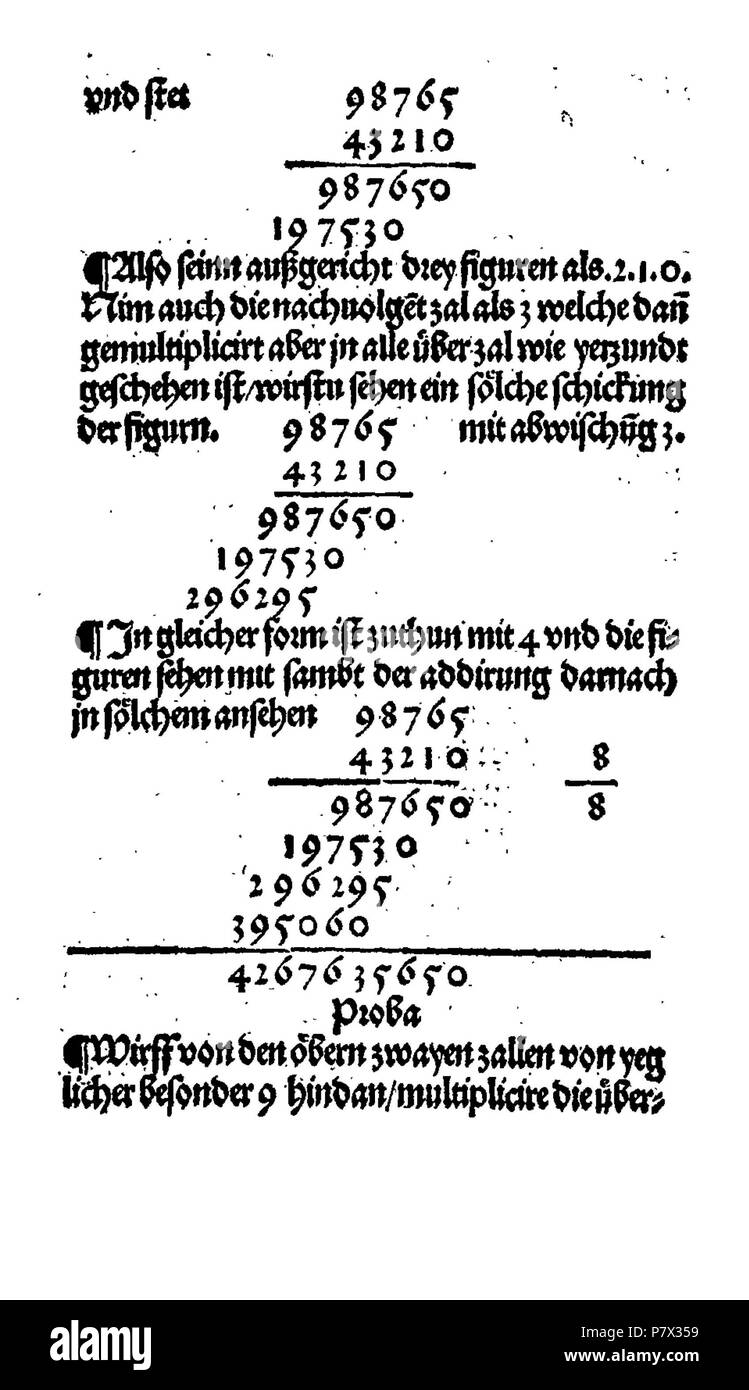 vnd stet 98765
43210
987650
197530
¶ Also seinn außgericht drey figuren als .2.1.0.
Nim auch die nachuolgēt zal als 3 welche dañ
gemultiplicirt aber jn alle über zal wie yetzundt
geschehen ist/wirstu sehen ein sölche schickung
der figurn. 98765 mit abwischūg 3.
43210
987650
197530
296295
¶ In gleicher form ist zuthun mit 4 vnd die fi=
guren sehen mit sambt der addirung darnach
jn sölchem ansehen 98765
43210 8
987650 8
197530
296295
395060
4267635650
Proba
¶ Wirff von den öbern zwayen zallen von yeg
licher besonder 9 hindan/multiplicire die über=
alamy
Image ID: P7X359
www.alamy.com